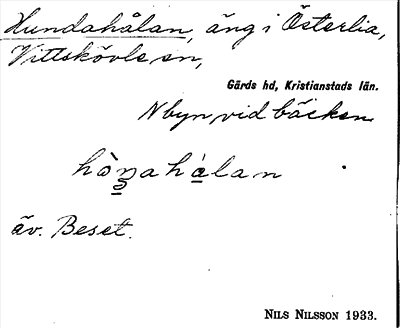 Hundahålan, äng i Österlia,
Vittskövle sn,
Gärds hd, Kristianstads län.
N byn vid bäcken
äv. Beset.
NILS NILSSON 1933.